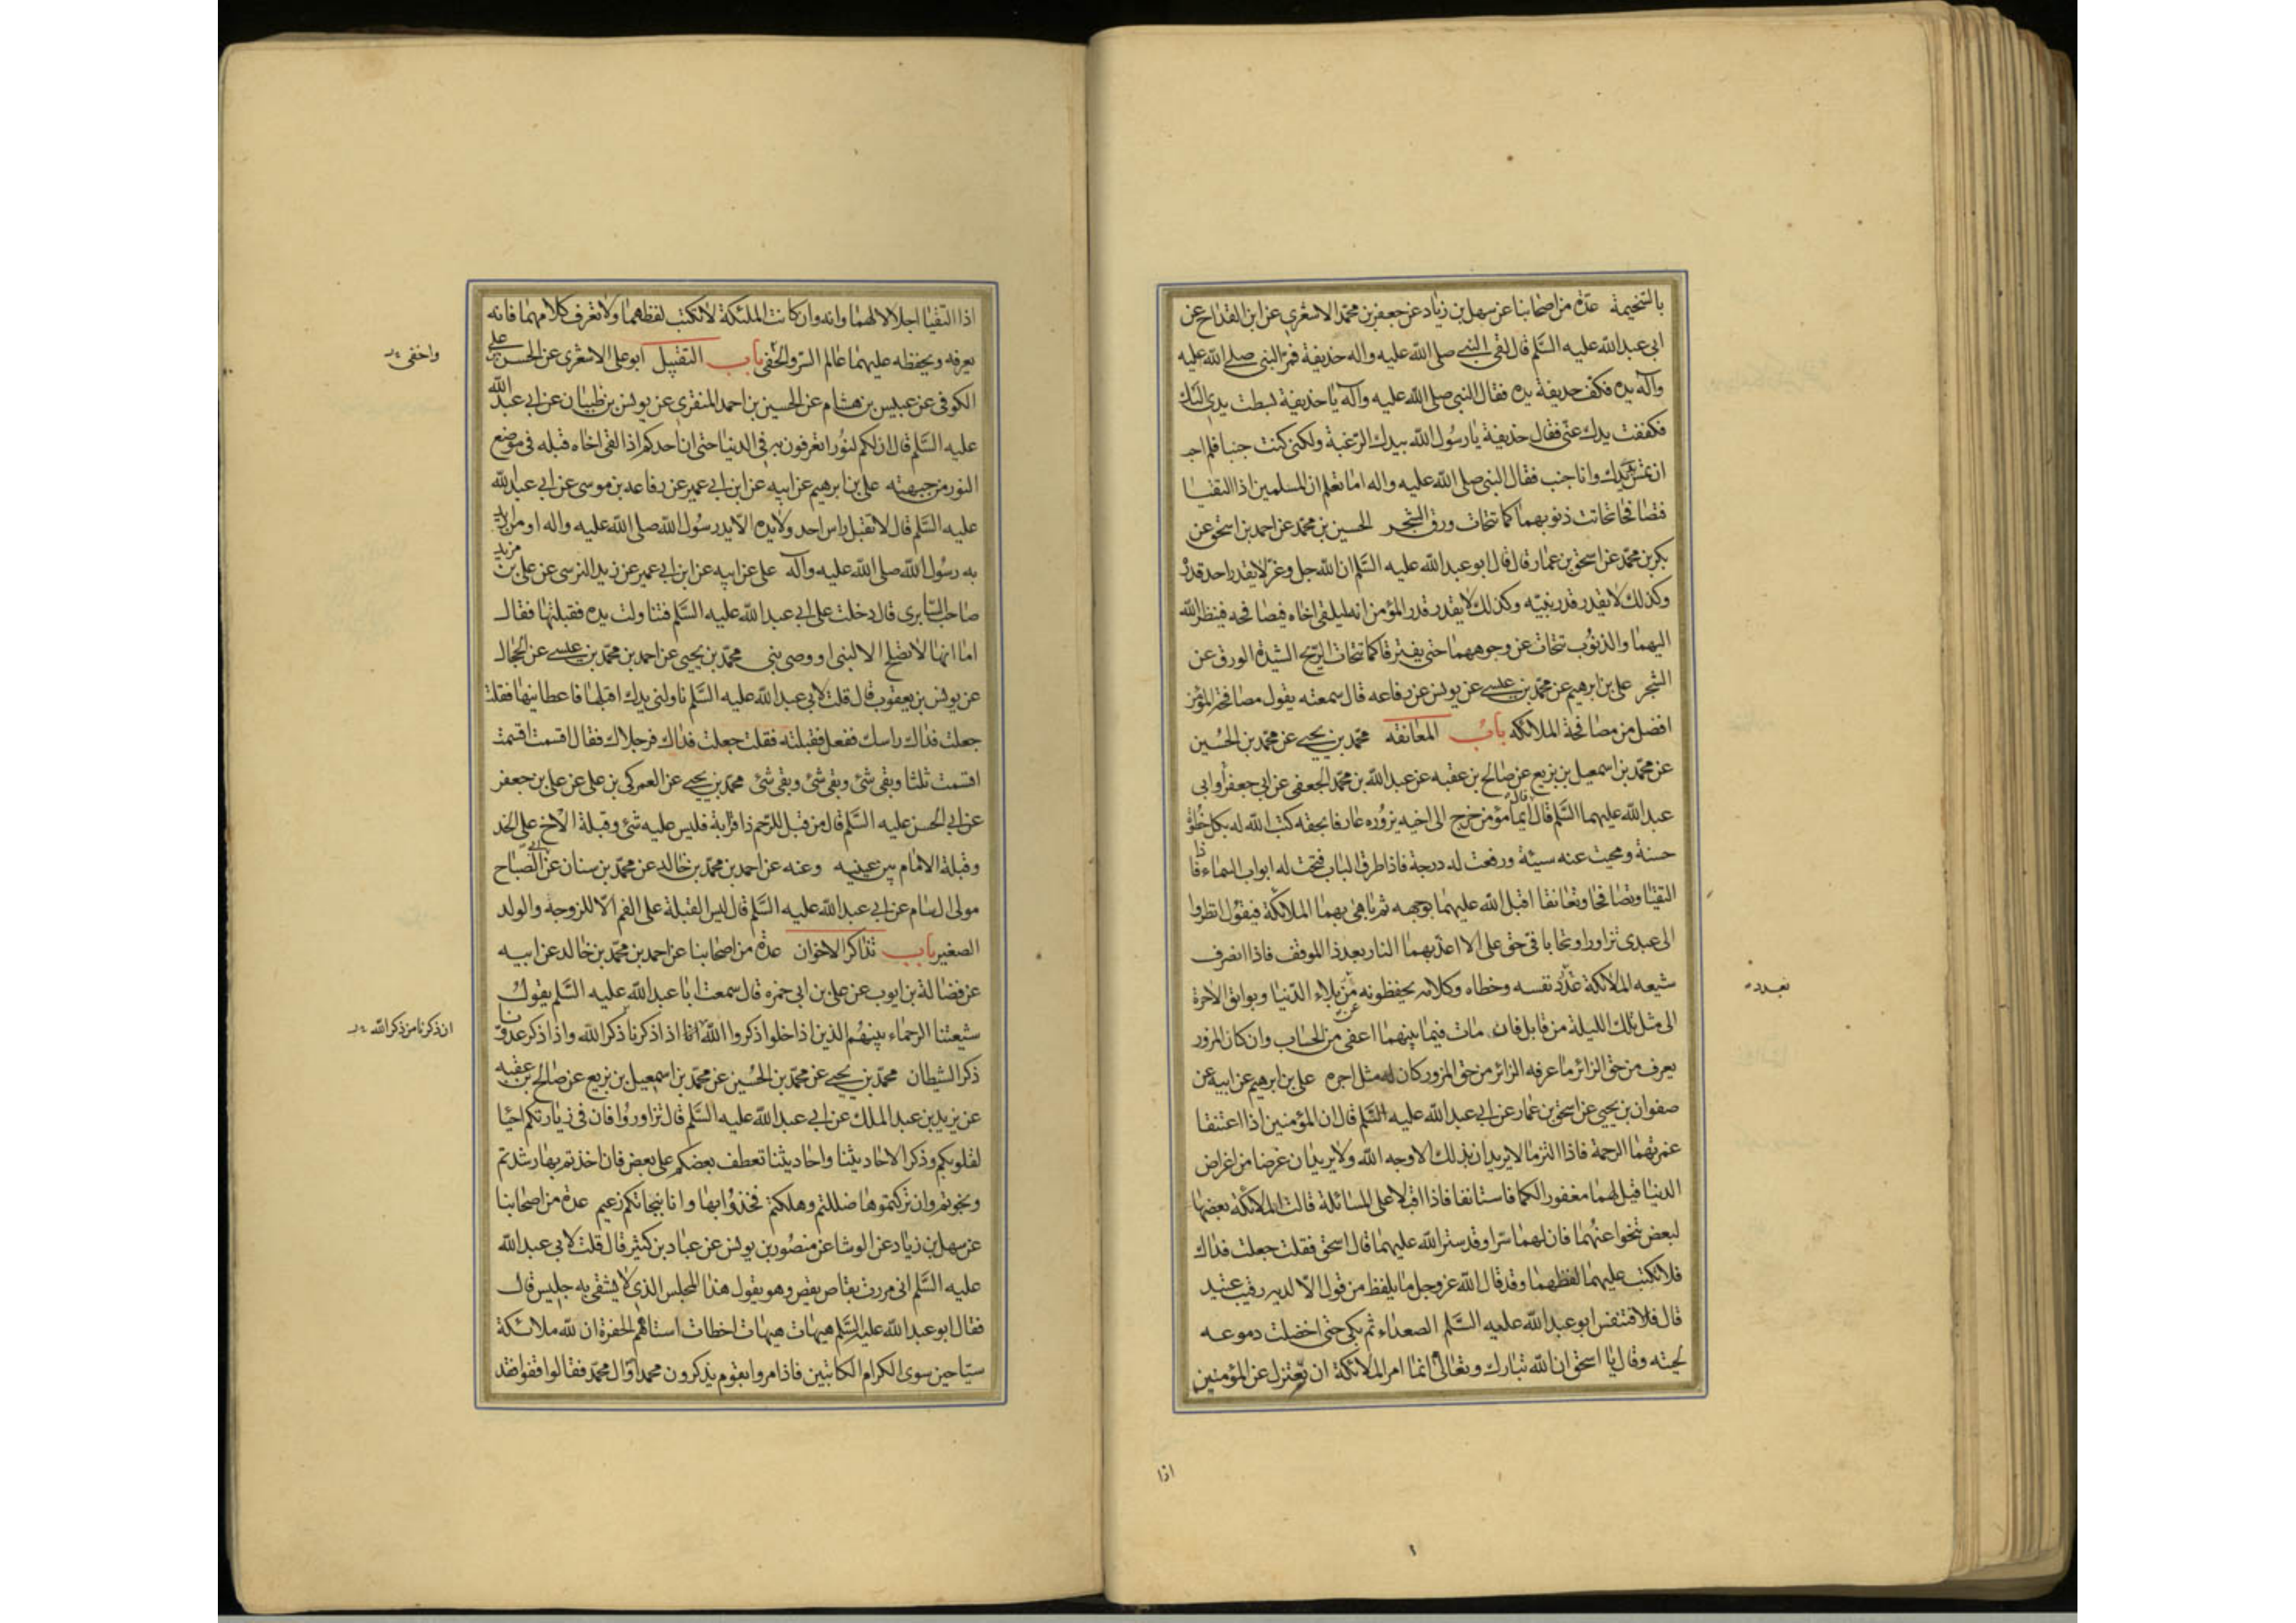 بالسخيمة عدة من اصحابنا عن سهل بن زياد عن جعفر بن محمد الاشعري عن ابن القداح عن
ابي عبد الله عليه السلم قال لقى النبي صلى الله عليه واله حذيفة فمد النبي صلى الله عليه
وآله يده فكف حذيفة يده فقال النبي صلى الله عليه وآله يا حذيفة بسطت يدي اليك
فكففت يدك عني فقال حذيفة يا رسول الله بيدك الرغبة ولكني كنت جنبا فلم احب
ان تمس يدك وانا جنب فقال النبي صلى الله عليه واله اما تعلم ان المسلمين اذا التقيا
فتصافحا تحاتت ذنوبهما كما تتحات ورق الشجر الحسين بن محمد عن احمد بن اسحق عن
بكر بن محمد عن اسحق بن عمار قال قال ابو عبد الله عليه السلم ان الله جل وعز لا يقدر احد قدره
وكذلك لا يقدر قدر نبيه وكذلك لا يقدر قدر المؤمن انه ليلقى اخاه فيصافحه فينظر الله
اليهما والذنوب تتحات عن وجوههما حتى يفترقا كما تتحات الريح الشديدة الورق عن
الشجر علي بن ابرهيم عن محمد بن عيسى عن يونس عن رفاعه قال سمعته يقول مصافحة المؤمن
افضل من مصافحة الملائكه باب المعانقه محمد بن يحيى عن محمد بن الحسين
عن محمد بن اسمعيل بن بزيع عن صالح بن عقبه عن عبد الله بن محمد الجعفى عن ابي جعفر وابي
عبد الله عليهما السلم قالا ايما مؤمن خرج الى اخيه يزوره عارفا بحقه كتب الله له بكل خطوة
حسنة ومحيت عنه سيئة ورفعت له درجة فاذا طرق الباب فتحت له ابواب السماء فاذا
التقيا وتصافحا وتعانقا اقبل الله عليهما بوجهه ثم باهى بهما الملائكة فيقول انظروا
الى عبدى تزاورا وتحابا في حق على الا اعذبهما بالنار بعد ذا الموقف فاذا انصرف
شيعه الملائكة عدد نفسه وخطاه وكلامه يحفظونه من بلاء الدنيا وبوايق الاخرة
الى مثل تلك الليلة من قابل فان مات فيما بينهما اعفى من الحساب وان كان المزور
يعرف من حق الزائر ما عرفه الزائر من حق المزور كان له مثل اجره علي بن ابرهيم عن ابيه عن
صفوان بن يحيى عن اسحق بن عمار عن ابي عبد الله عليه السلم قال ان المؤمنين اذا اعتنقا
غمرتهما الرحمة فاذا التزما لا يريدان بذلك الا وجه الله ولا يريدان غرضا من اغراض
الدنيا قيل لهما مغفور الكما فاستانفا فاذا اقبلا على المسائلة قالت الملائكة بعضها
لبعض تنحوا عنهما فان لهما سرا وقد ستر الله عليهما قال اسحق فقلت جعلت فداك
فلا تكتب عليهما لفظهما وقد قال الله عز وجل ما يلفظ من قول الا لديه رقيب عتيد
قال فلا فتنفس ابو عبد الله عليه السلم الصعداء ثم بكى حتى اخضلت دموعه
لحيته وقال يا اسحق ان الله تبارك وتعالى انما امر الملائكة ان تعتزل عن المؤمنين
اذا
اذا التقيا اجلالا لهما وانه وان كانت الملئكة لا تكتب لفظهما ولا تعرف كلامهما فانه
يعرفه ويحفظه عليهما عالم السر والخفى باب التقبيل ابو علي الاشعرى عن الحسن بن علي
واخفى
الكوفى عن عبيس بن هشام عن الحسين بن احمد المنقرى عن يونس بن ظبيان عن ابي عبد الله
عليه السلم قال ان لكم لنورا تعرفون به في الدنيا حتى ان احدكم اذا لقى اخاه قبله في موضع
النور من جبهته علي بن ابرهيم عن ابيه عن ابن ابي عمير عن رفاعه بن موسى عن ابي عبد الله
عليه السلم قال لا تقبل راس احد ولا يده الا يد رسول الله صلى الله عليه واله او من اريد
به رسول الله صلى الله عليه وآله علي عن ابيه عن ابن ابي عمير عن زيد النرسى عن علي بن مزيد
صاحب السابرى قال دخلت على ابي عبد الله عليه السلم فتناولت يده فقبلتها فقال
اما انها لا تصلح الا لنبى او وصى نبى محمد بن يحيى عن احمد بن محمد بن عيسى عن الحجال
عن يونس بن يعقوب قال قلت لابي عبد الله عليه السلم ناولنى يدك اقبلها فاعطانيها فقلت
جعلت فداك راسك ففعل فقبلته فقلت جعلت فداك فرجلاك فقال اقسمت اقسمت
اقسمت ثلثا وبقى شئ وبقى شئ وبقى شئ محمد بن يحيى عن العمركى بن علي عن علي بن جعفر
عن ابي الحسن عليه السلم قال من قبل للرحم ذا قرابة فليس عليه شئ وقبلة الاخ على الخد
وقبلة الامام بين عينيه وعنه عن احمد بن محمد بن خالد عن محمد بن سنان عن ابي الصباح
مولى ال سام عن ابي عبد الله عليه السلم قال ليس القبلة على الفم الا للزوجة والولد
الصغير باب تذاكر الاخوان عدة من اصحابنا عن احمد بن محمد بن خالد عن ابيه
عن فضالة بن ايوب عن علي بن ابي حمزه قال سمعت ابا عبد الله عليه السلم يقول
شيعتنا الرحماء بينهم الذين اذا خلوا ذكروا الله انا اذا ذكرنا ذكر الله واذا ذكر عدونا
ان ذكرنا من ذكر الله
ذكر الشيطان محمد بن يحيى عن محمد بن الحسين عن محمد بن اسمعيل بن بزيع عن صالح بن عقبه
عن يزيد بن عبد الملك عن ابي عبد الله عليه السلم قال تزاوروا فان في زيارتكم احيا
لقلوبكم وذكر الاحاديثنا واحاديثنا تعطف بعضكم على بعض فان اخذتم بها رشدتم
ونجوتم وان تركتموها ضللتم وهلكتم فخذوا بها وانا بنجاتكم زعيم عدة من اصحابنا
عن سهل بن زياد عن الوشا عن منصور بن يونس عن عباد بن كثير قال قلت لابي عبد الله
عليه السلم انى مررت بقاص يقص وهو يقول هذا المجلس الذي لا يشقى به جليس قال
فقال ابو عبد الله عليه السلم هيهات هيهات اخطات استاههم الحفرة ان لله ملائكة
سياحين سوى الكرام الكاتبين فاذا مروا بقوم يذكرون محمدا وال محمد فقالوا قفوا فقد